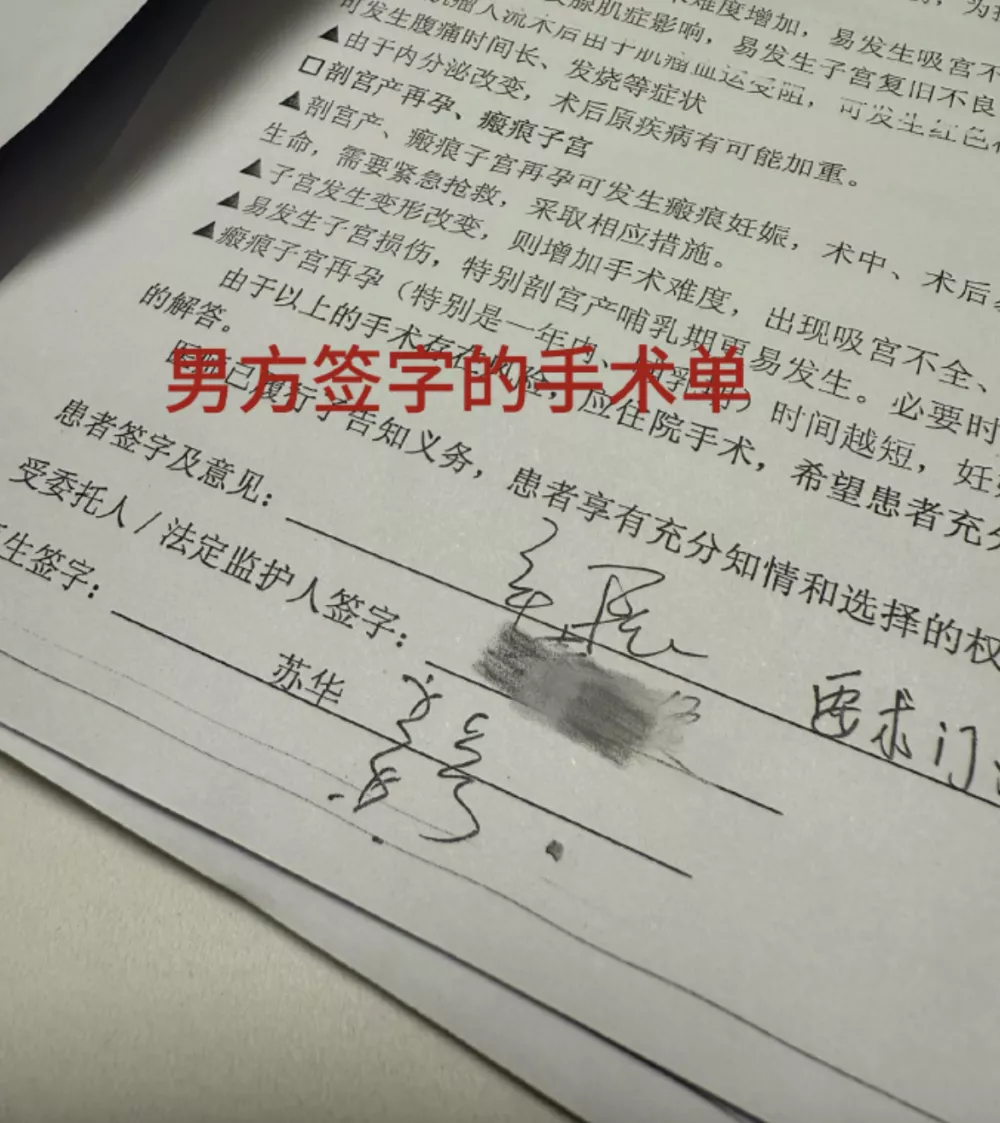 难度增加，易发生吸宫不
腺肌症影响，易发生子宫复旧不良
人流术后由于肌瘤血运受阻，可发生红色
可发生腹痛时间长、发烧等症状
▲由于内分泌改变，术后原疾病有可能加重。
□剖宫产再孕、瘢痕子宫
▲剖宫产、瘢痕子宫再孕可发生瘢痕妊娠，术中、术后
生命，需要紧急抢救，采取相应措施。
▲子宫发生变形改变，则增加手术难度，出现吸宫不全、
▲易发生子宫损伤，特别剖宫产哺乳期更易发生。必要时
▲瘢痕子宫再孕（特别是一年内、哺乳期）时间越短，妊
由于以上的手术存在风险，应住院手术，希望患者充分
的解答。
男方签字的手术单
医生已履行了告知义务，患者享有充分知情和选择的权
患者签字及意见：
要求门
受委托人/法定监护人签字：
生签字：
苏华